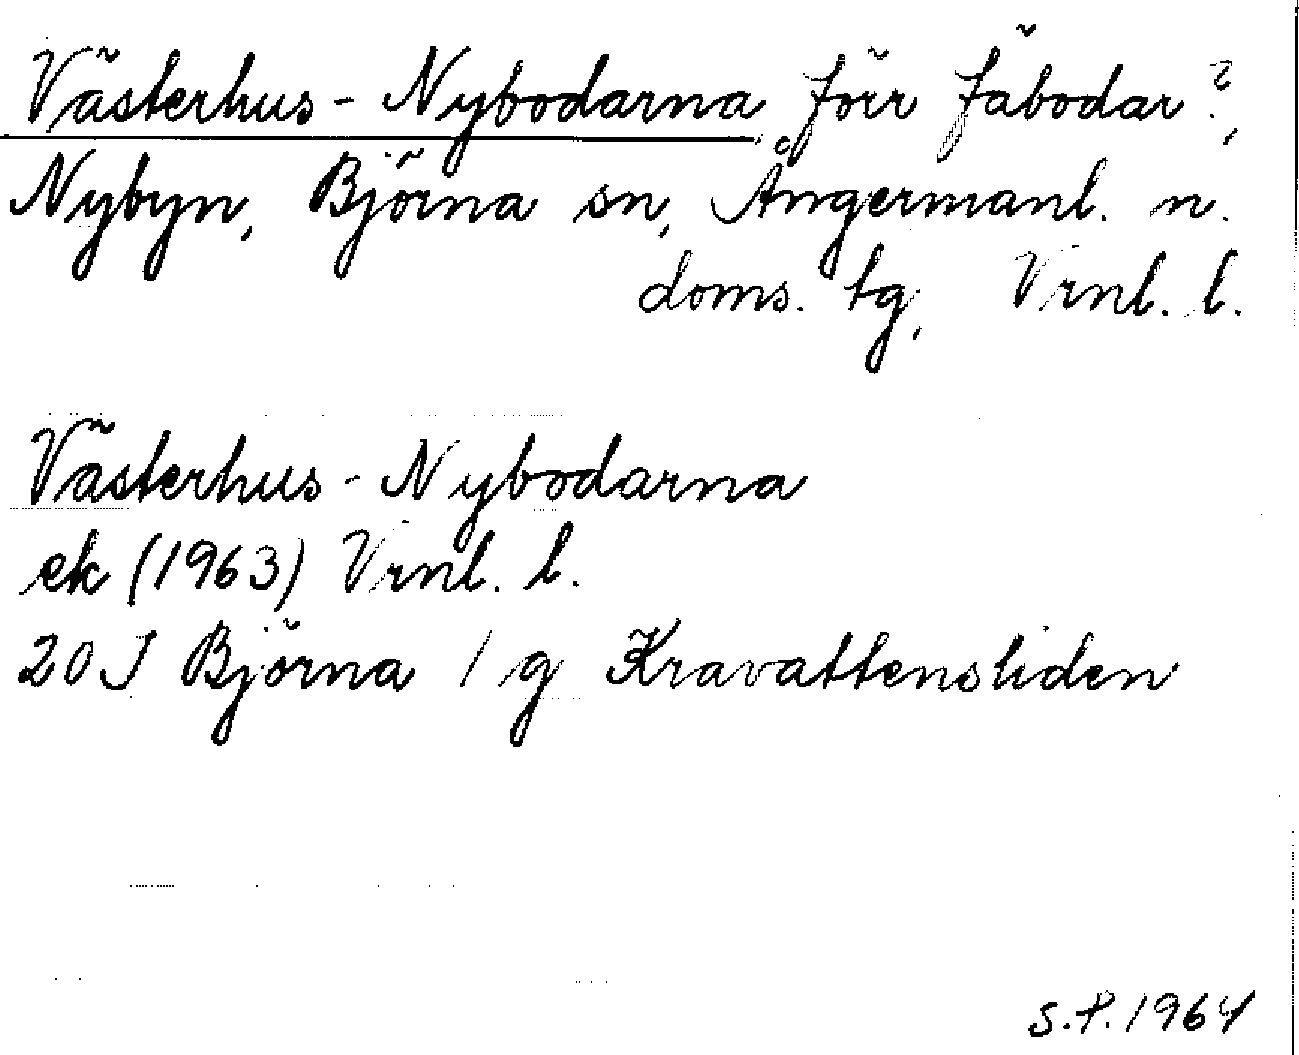 Västerhus-Nybodarna förr fäbodar?,
Nybyn, Björna sn, Ångermanl. n.
doms. tg, Vrnl. l.
Västerhus-Nybodarna
ek (1963) Vrnl. l.
20 J Björna 1 g Kravattensliden
S.P. 1964